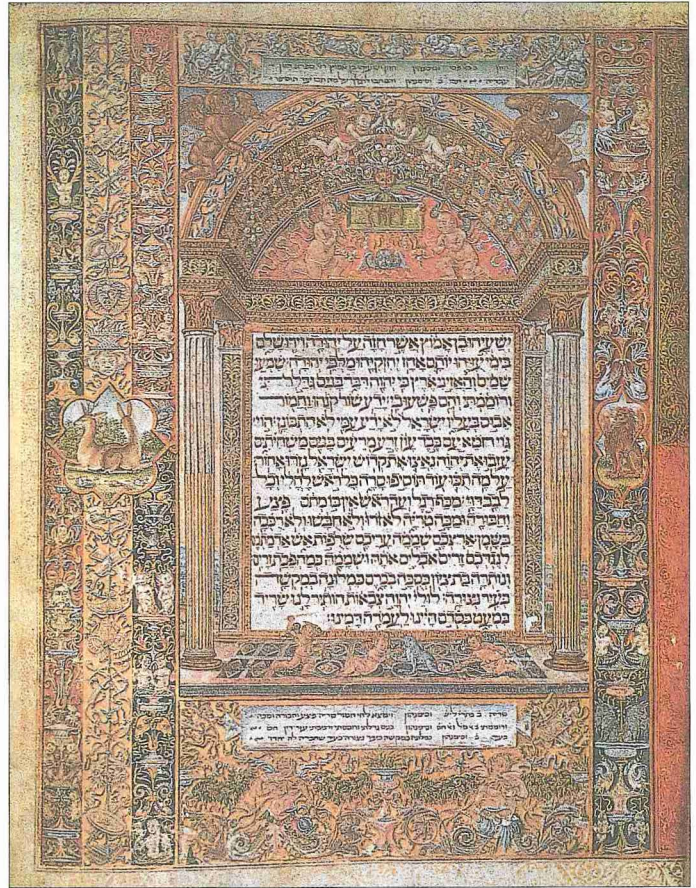 ישעיהו בן אמוץ אשר חזה על יהודה וירושלם
בימי עזיהו יותם אחז יחזקיהו מלכי יהודה שמעו
שמים והאזיני ארץ כי יהוה דבר בנים גדלתי
ורוממתי והם פשעו בי ידע שור קנהו וחמור
אבוס בעליו ישראל לא ידע עמי לא התבונן הוי
גוי חטא עם כבד עון זרע מרעים בנים משחיתים
עזבו את יהוה נאצו את קדוש ישראל נזרו אחור
על מה תכו עוד תוסיפו סרה כל ראש לחלי וכל
לבב דוי מכף רגל ועד ראש אין בו מתם פצע
וחבורה ומכה טריה לא זרו ולא חבשו ולא רככה
בשמן ארצכם שממה עריכם שרפות אש אדמתכם
לנגדכם זרים אכלים אתה ושממה כמהפכת זרים
ונותרה בת ציון כסכה בכרם כמלונה במקשה
כעיר נצורה לולי יהוה צבאות הותיר לנו שריד
כמעט כסדם היינו לעמרה דמינו׃